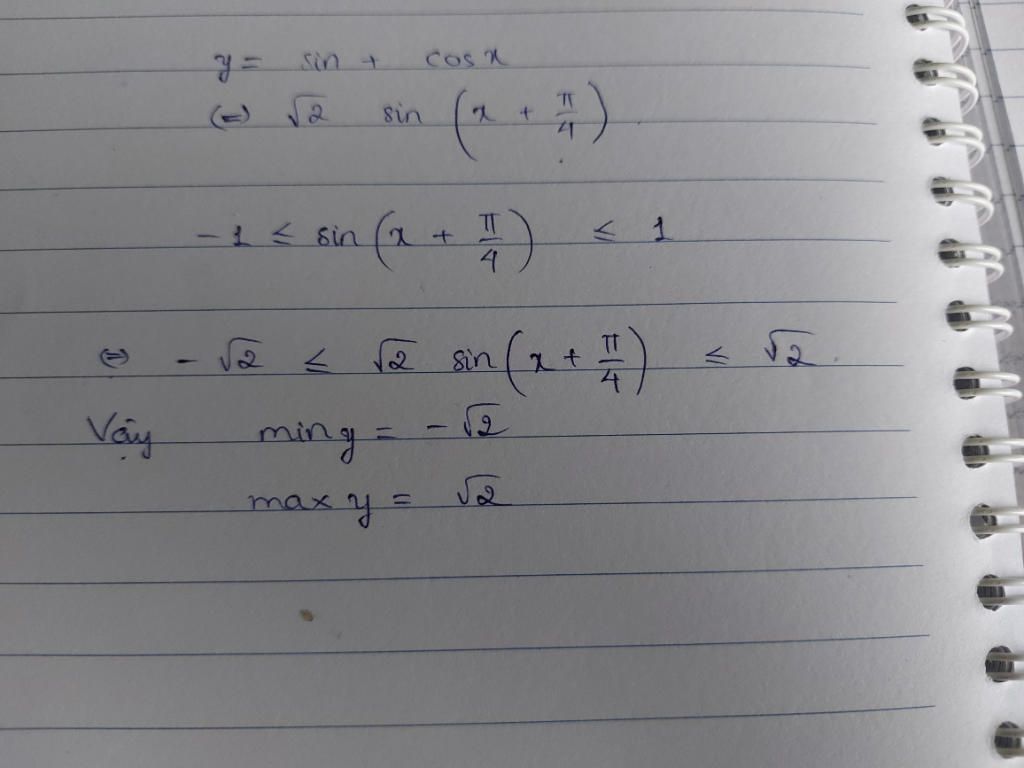 y = sin + cos x
(=) √2 sin (x + π/4)
-1 ≤ sin (x + π/4) ≤ 1
(=) -√2 ≤ √2 sin (x + π/4) ≤ √2.
Vậy min y = -√2
max y = √2